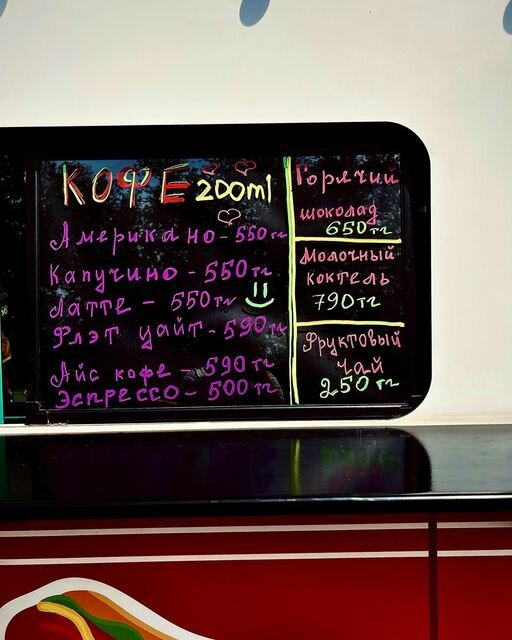 КОФЕ 200ml
Американо - 550тг
Капучино - 550тг
Латте - 550тг
Флэт уайт - 590тг
Айс кофе - 590тг
Эспрессо - 500тг
Горячий
шоколад
650тг
Молочный
коктель
790тг
Фруктовый
чай
250тг